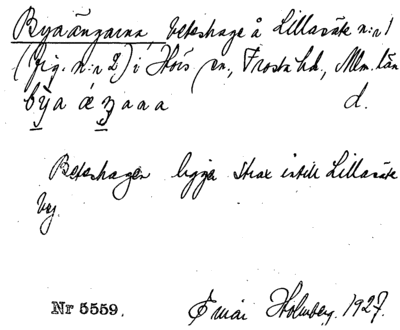 Byaängarna, beteshage å Lillasäte n:r 1
(fig. n:r 2) i Hörs sn., Frosta hd., Mlm. län
d.
Beteshagen ligger strax intill Lillasäte
by.
Nr 5559. Esmair Holmberg. 1927.